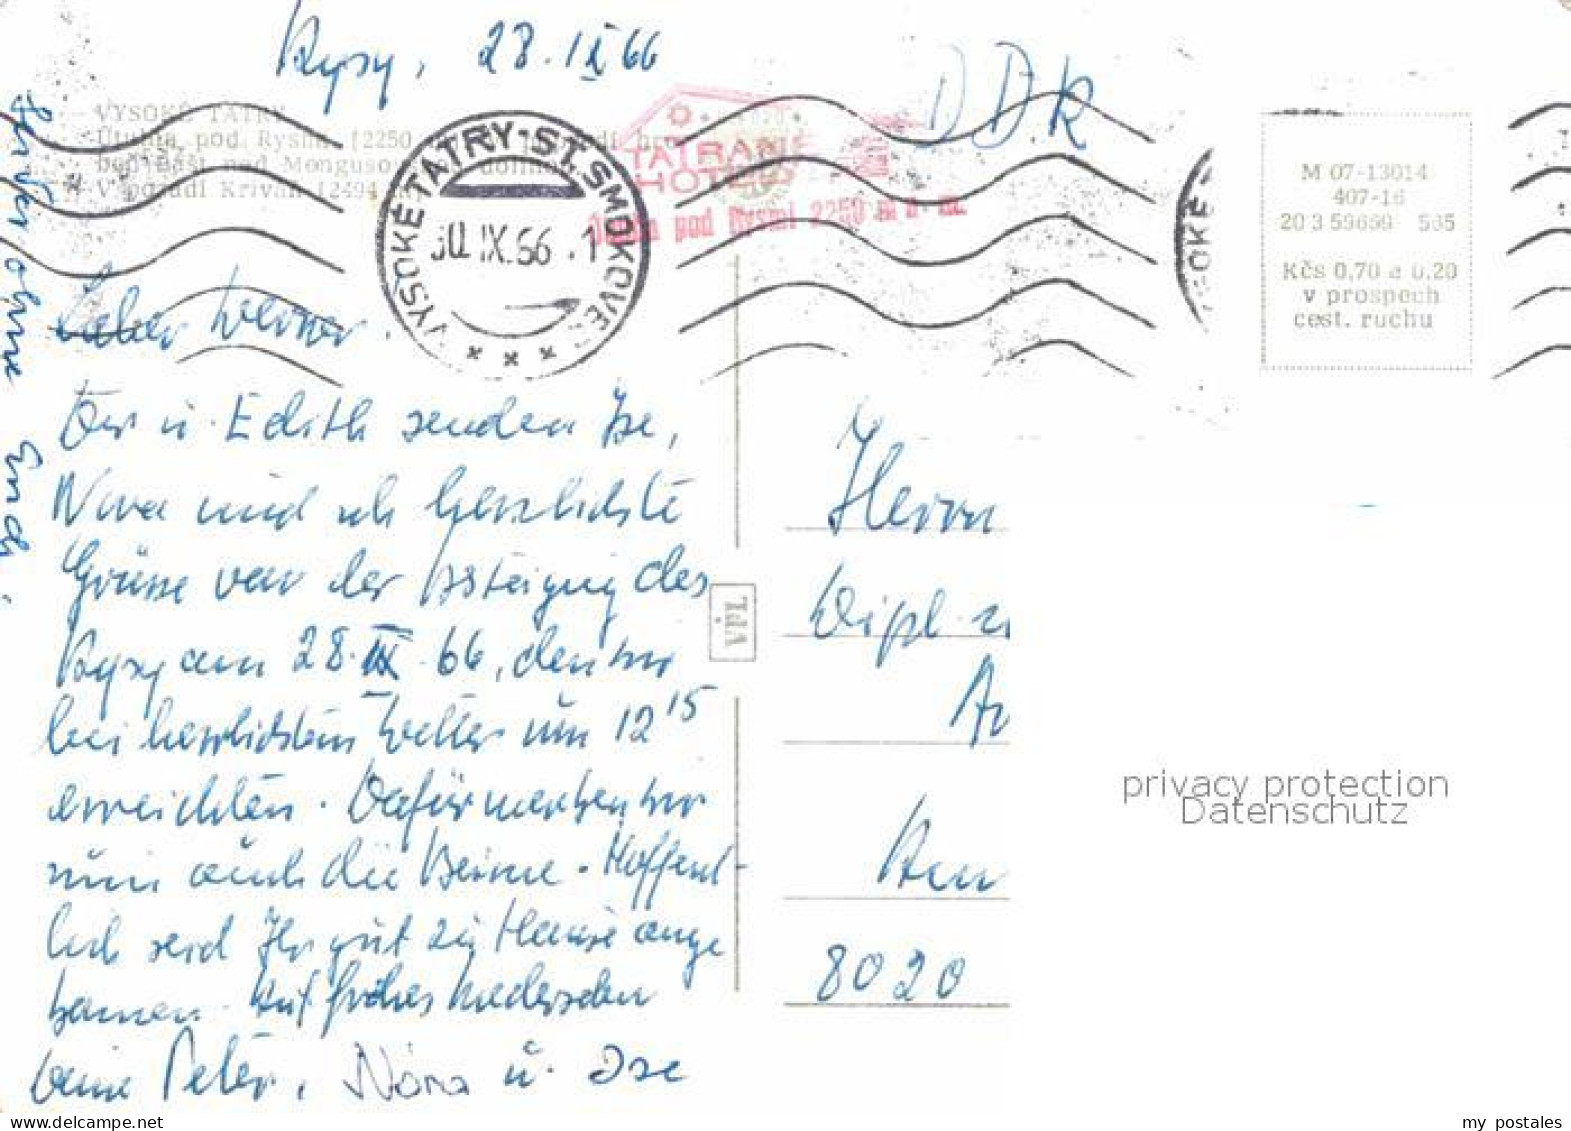 Rysy, 28.IX 66
DDR
VYSOKÉ TATRY
Útulňa pod Rysmi [2250
pod Mengusov
V pozadí Kriváň [2494
VYSOKÉ TATRY-ST. SMOKOVEC
30.IX.66.-1
TATRANSKÉ
HOTELY
Útulňa pod Rysmi 2250 m n. m.
M 07-13014
407-16
20 3 59669 565
Kčs 0,70 a 0,20
v prospech
cest. ruchu
Lieber Werner,
Dir u. Edith senden Ise,
Nora und ich herzlichste
Grüsse von der Besteigung des
Rysy am 28.IX.66, den wir
bei herrlichstem Wetter um 12 15
erreichten. Dafür merken wir
nun auch die Beine. Hoffent-
lich seid Ihr gut zu Hause ange
kommen. Auf frohes Wiedersehen
Peter, Nora u. Ise
VPL
Herrn
Dipl.
8020
privacy protection
Datenschutz
my postales